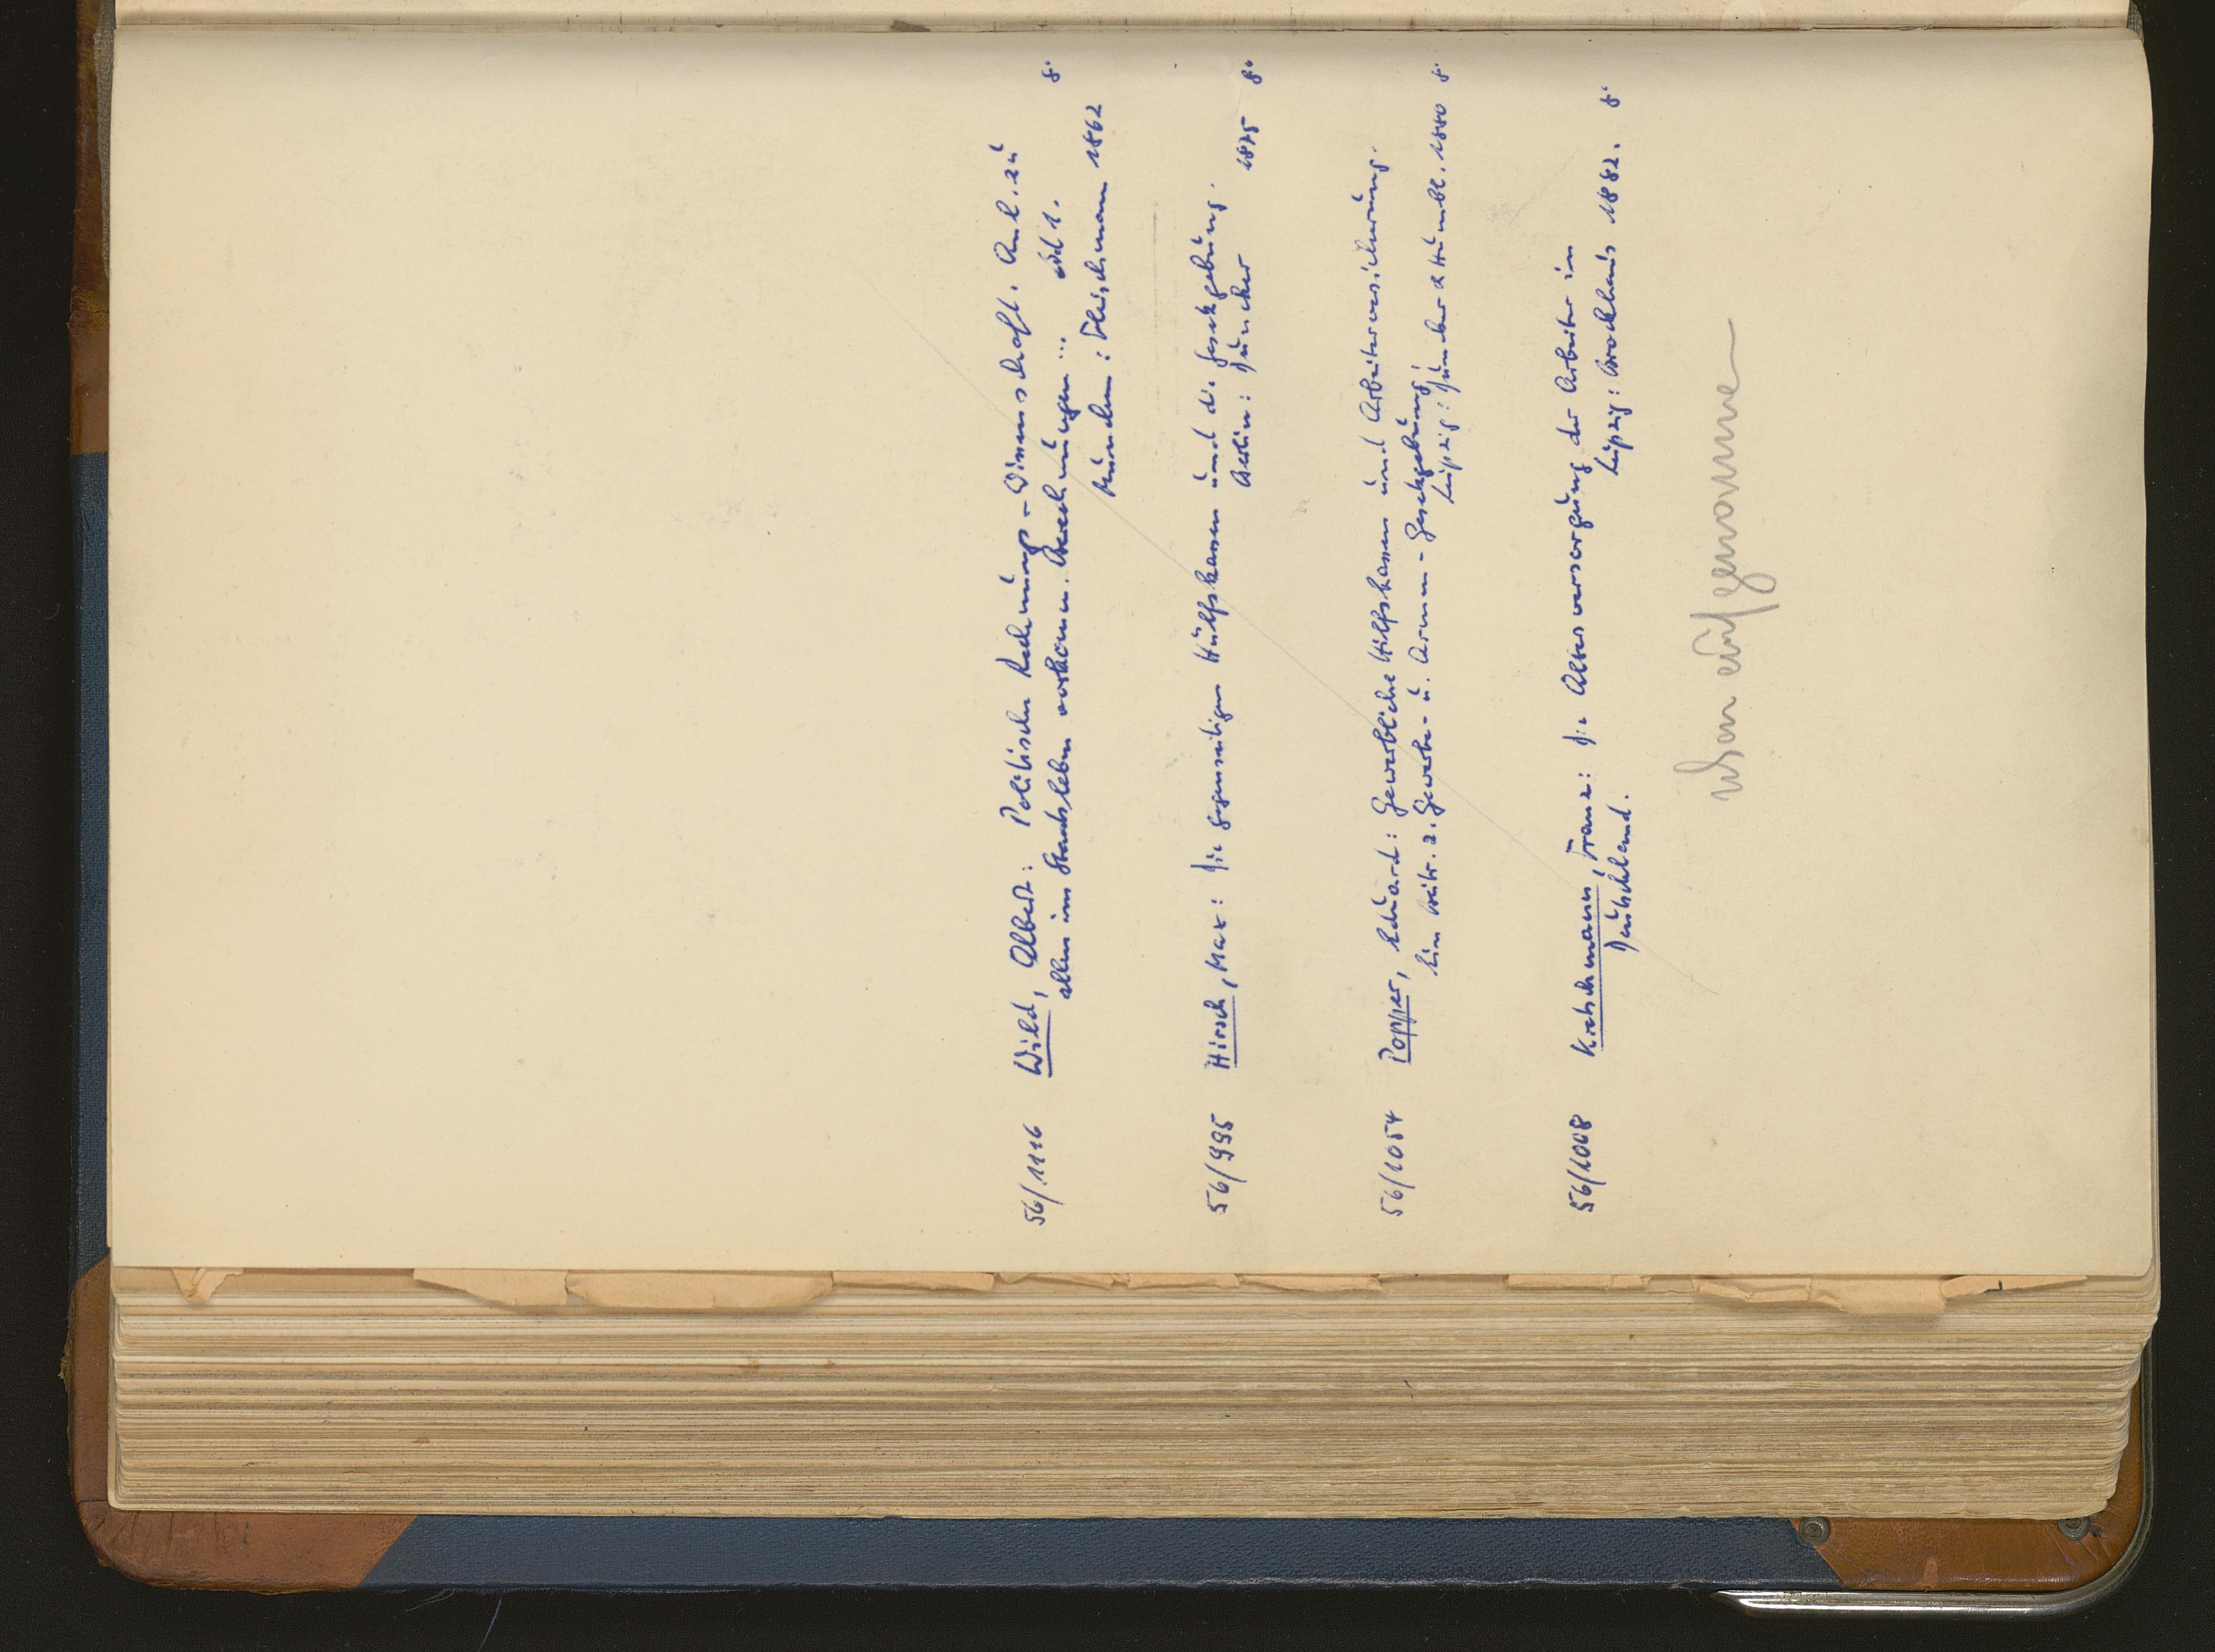 56/1116 Wild, Albert: Politische Rechnungs-Wissenschaft. Anl. zu
allen im Staatsleben vorkomm. Berechnungen ... Bd 1. 8°
München: Fleischmann 1862
56/995 Hirsch, Max: Die gegenseitigen Hülfskassen und die Gesetzgebung.
Berlin: Duncker 1875 8°
56/1054 Popper, Eduard: Gewerbliche Hilfskassen und Arbeiterversicherung.
Ein Beitr. z. Gewerbe- u. Armen-Gesetzgebung.
Leipzig: Duncker & Humbl. 1880 8°
56/1008 Kretschmann, Franz: Die Altersversorgung der Arbeiter im
Deutschland. Leipzig: Brockhaus 1882. 8°
aufgenommen